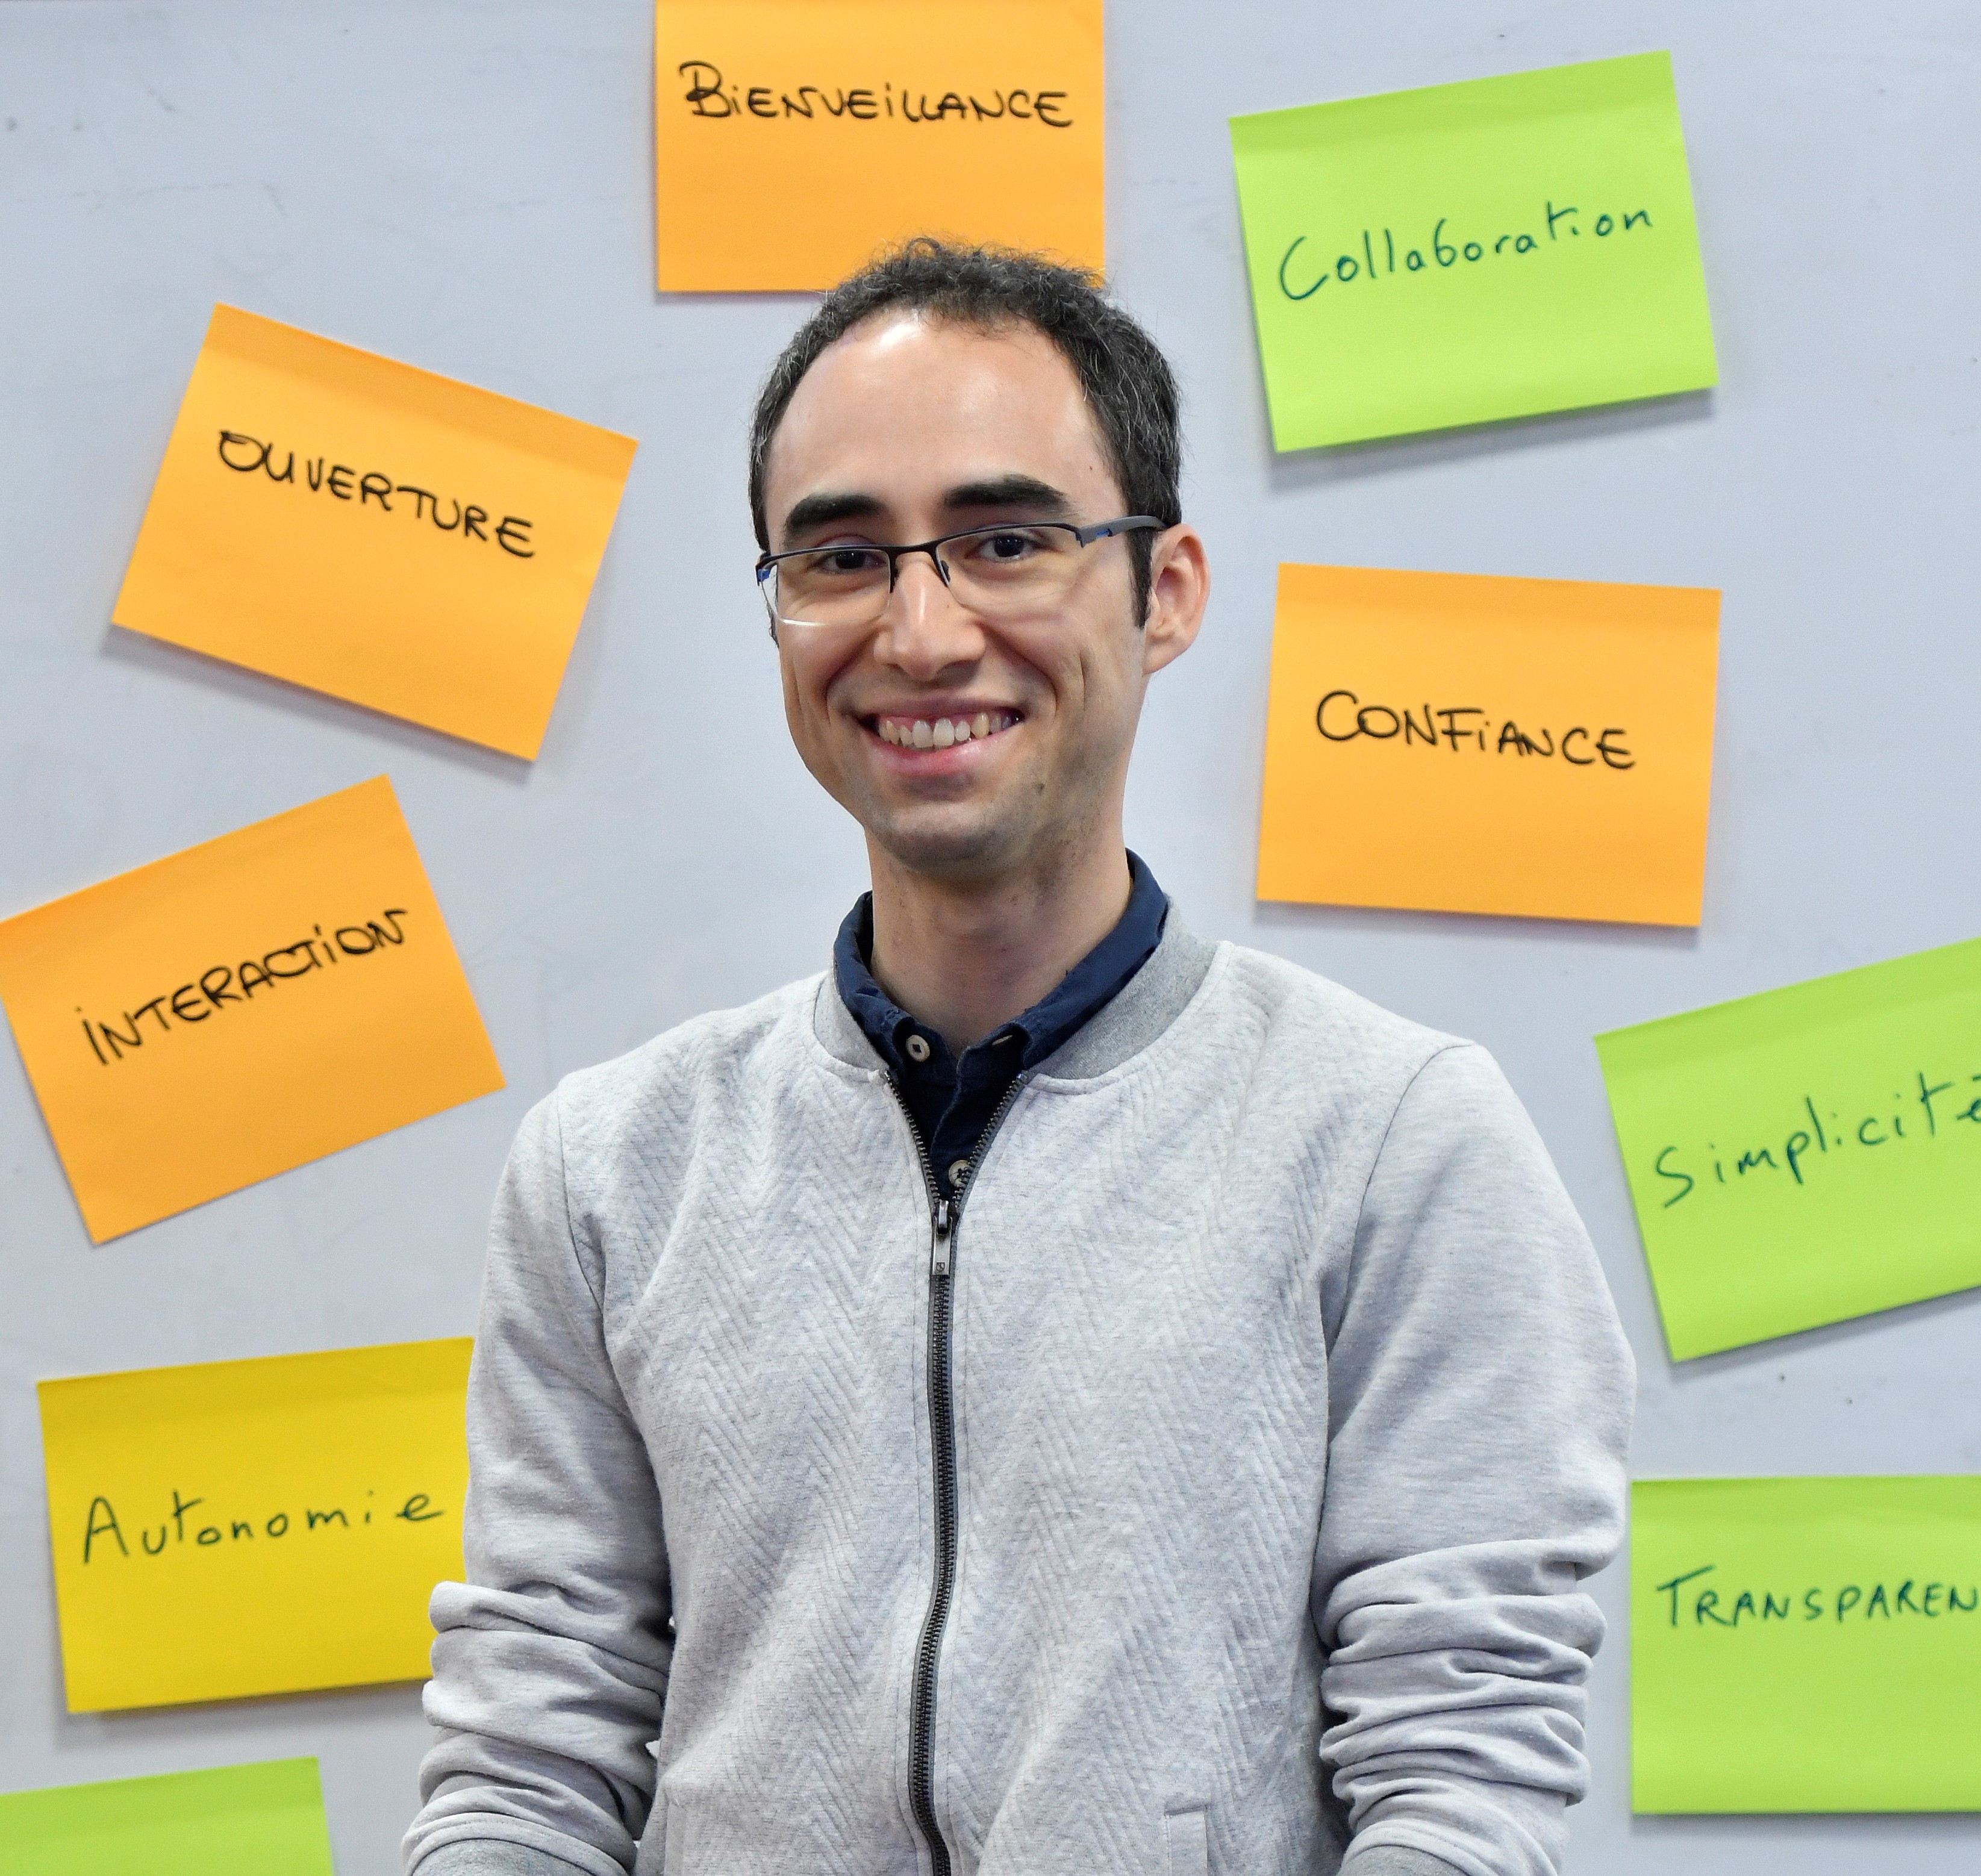 BiENVEiLLANCE
Collaboration
OUVERTURE
CONFiANCE
iNTERACTiON
Simplicité
Autonomie
TRANSPAREN